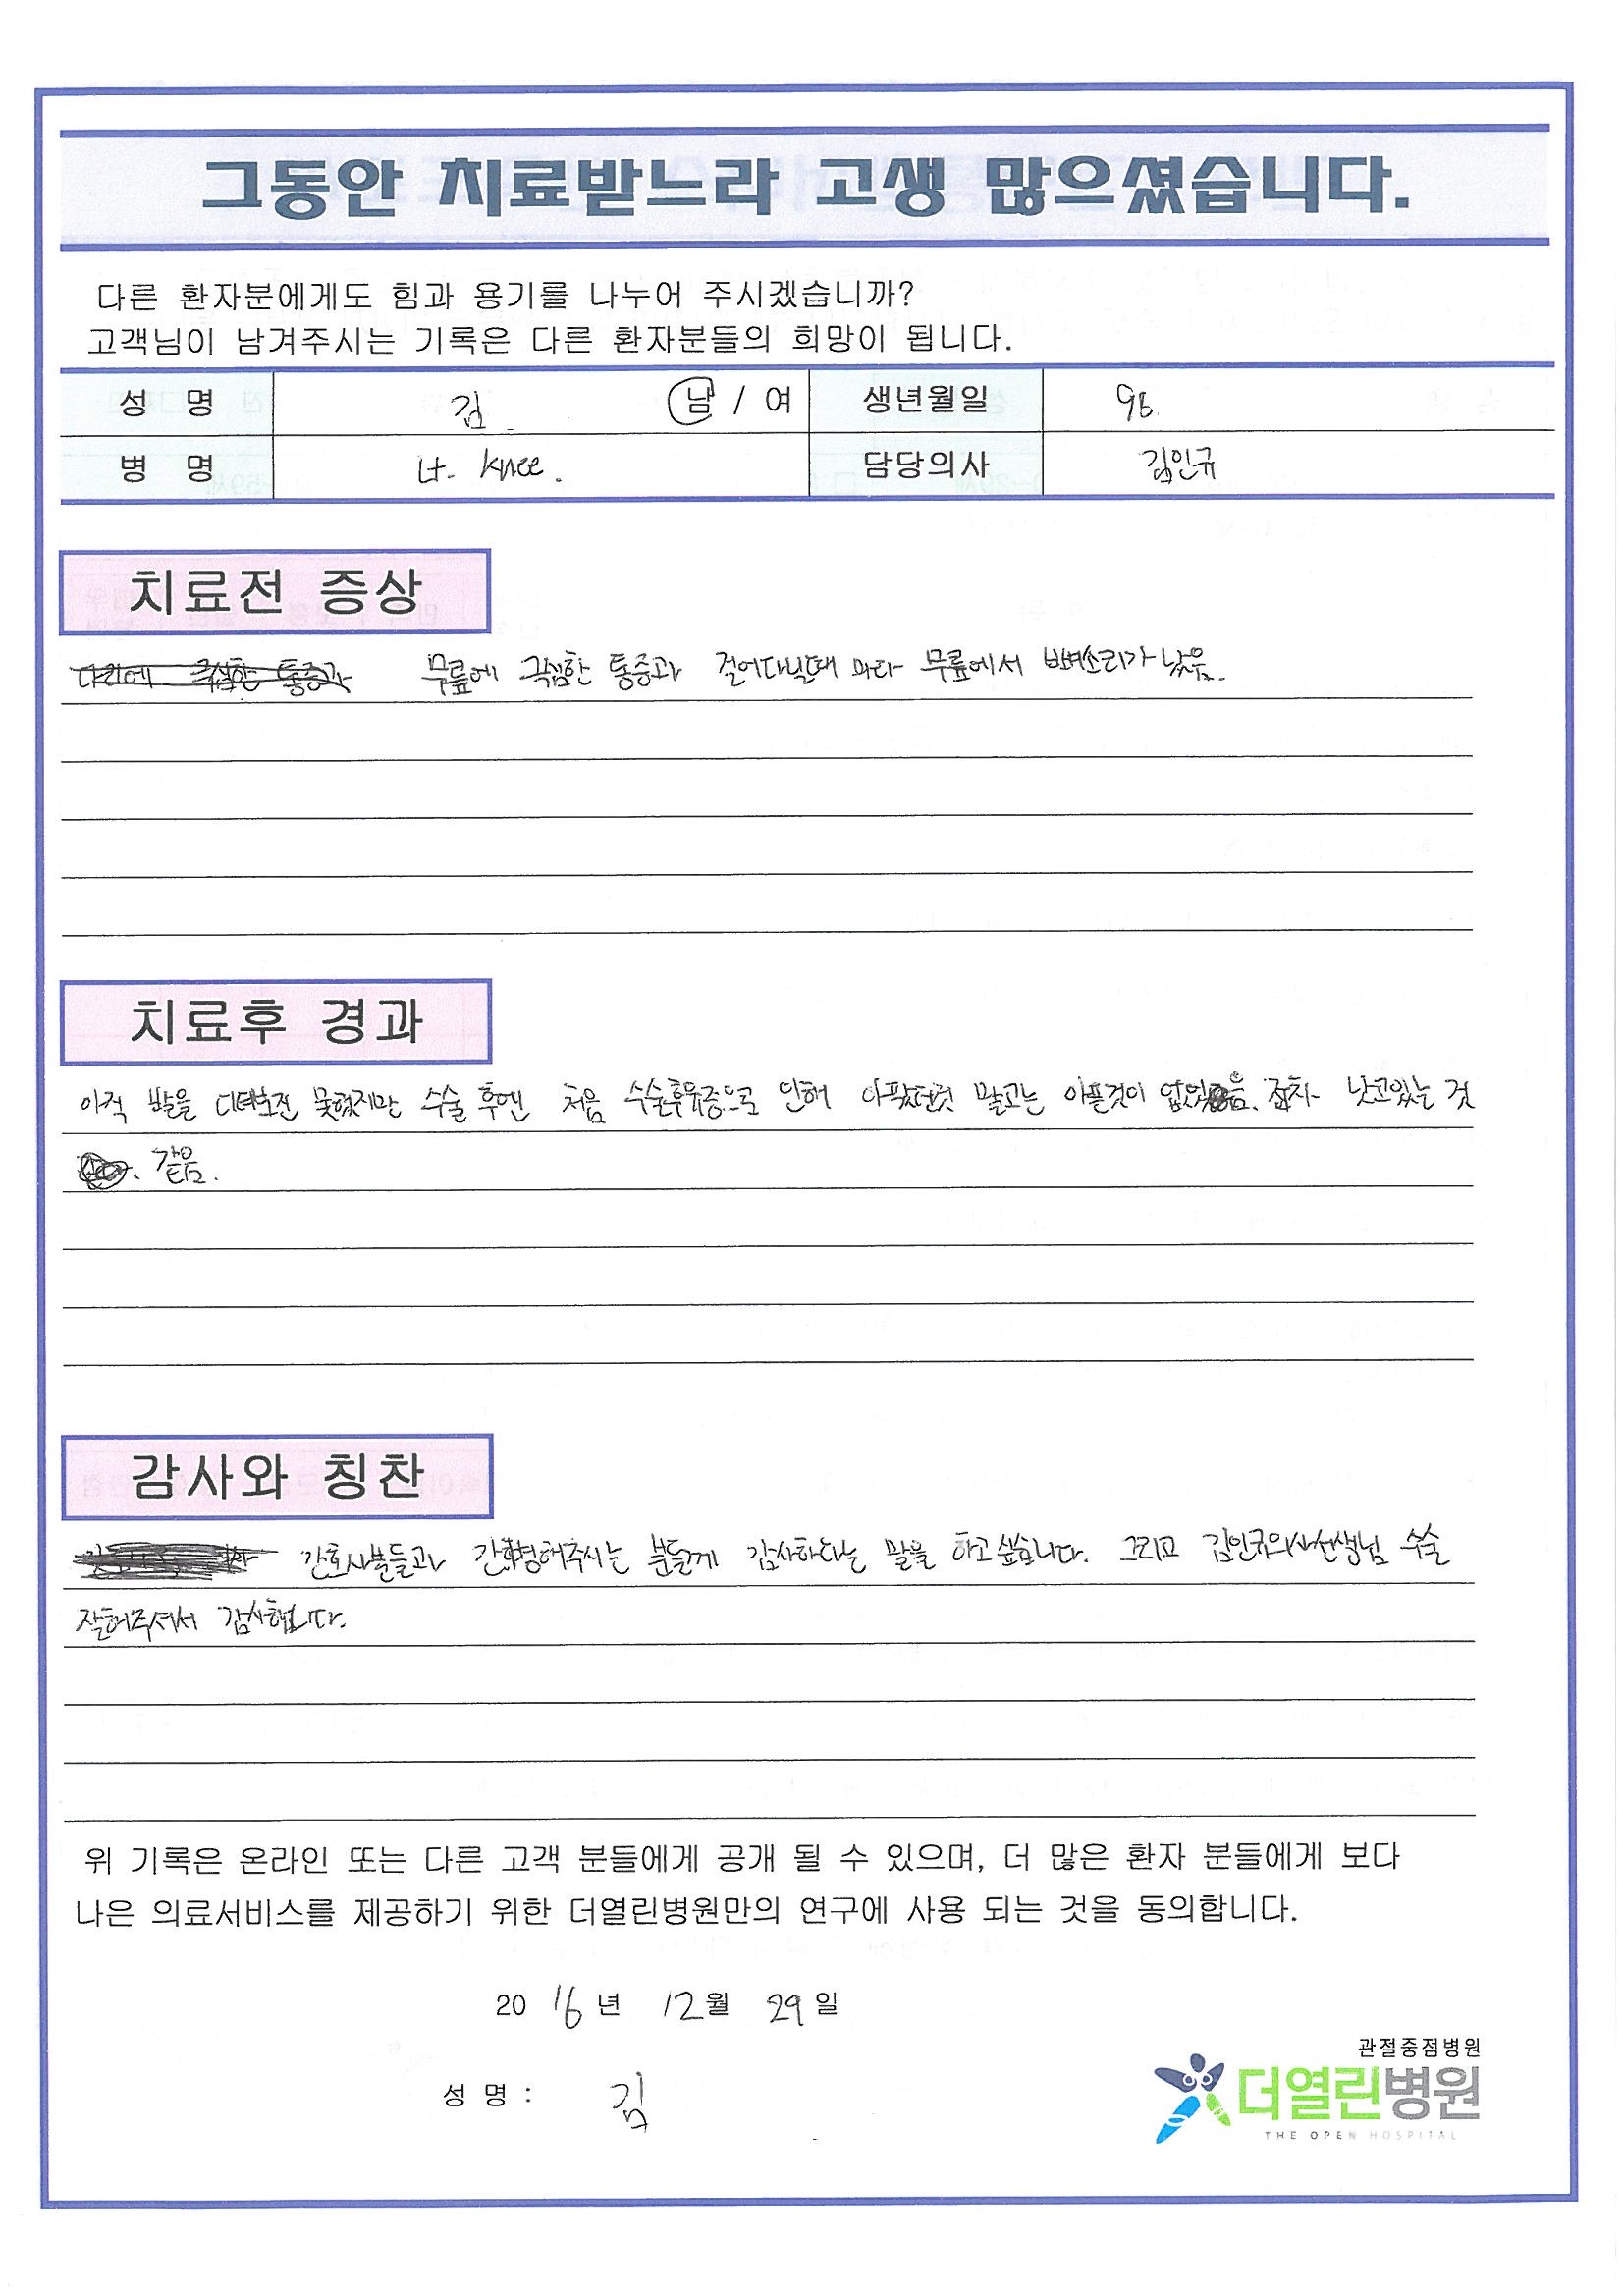 그동안 치료받느라 고생 많으셨습니다.
다른 환자분에게도 힘과 용기를 나누어 주시겠습니까?
고객님이 남겨주시는 기록은 다른 환자분들의 희망이 됩니다.
성 명 김 남 / 여 생년월일 95.
병 명 Lt. knee. 담당의사 김인규
치료전 증상
다리에 극심한 통증과 무릎에 극심한 통증과 걸어다닐때 마다 무릎에서 뼈소리가 났음.
치료후 경과
아직 발을 디뎌보진 못했지만 수술 후엔 처음 수술후유증으로 인해 아팠던것 말고는 아플것이 없었음. 점차 낫고있는 것
같음.
감사와 칭찬
간호사분들과 간병해주시는 분들께 감사하다는 말을 하고 싶습니다. 그리고 김인규의사선생님 수술
잘해주셔서 감사합니다.
위 기록은 온라인 또는 다른 고객 분들에게 공개 될 수 있으며, 더 많은 환자 분들에게 보다
나은 의료서비스를 제공하기 위한 더열린병원만의 연구에 사용 되는 것을 동의합니다.
20 16 년 12 월 29 일
관절중점병원
성 명 : 김
더열린병원
THE OPEN HOSPITAL